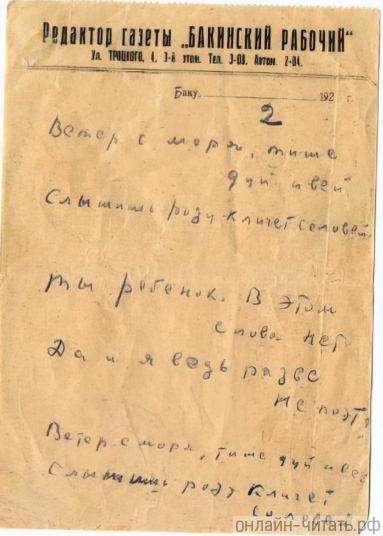 Редактор газеты „БАКИНСКИЙ РАБОЧИЙ“
Ул. ТРОЦКОГО, 4, 3-й этаж. Тел. 3-08. Автом. 2-84.
Баку 192 г.
2
Ветер с моря, тише
дуй и вей
Слышишь розу кличет соловей
Ты ребенок. В этом
слова нет
Да и я ведь разве
не поэт
Ветер с моря, тише дуй и вей
Слышишь розу кличет
соловей
онлайн-читать.рф